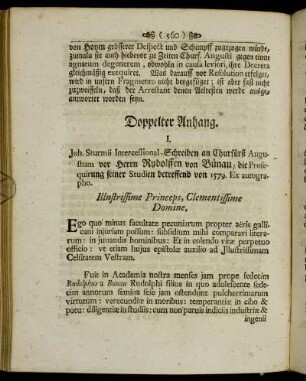 ( 560 )
von Hoym grösserer Despect und Schimpff zugezogen würde,
zumaln sie auch hiebevor zu Zeiten Churf. Augusti gegen einen
agnatum degenerem, obwohln in causa leviori, ihre Decreta
gleichmäßig exequiret. Was darauff vor Resolution erfolget,
wird in unsern Fragmento nicht beygefüget; ist aber fast nicht
zuzweiffeln, daß der Arrestant denen Aeltestern werde ausge-
antwortet worden seyn.
Doppelter Anhang.
I.
Joh. Sturmii Intercessional-Schreiben an Churfürst Augu-
stum vor Herrn Rudolffen von Bünau, die Prose-
quirung seiner Studien betreffend von 1579. Ex autogra-
pho.
Illustrissime Princeps, Clementissime
Domine,
Ego quo minus facultate pecuniarum propter aëris galli-
cani injuriam possum: subsidium mihi comparavi litera-
rum: in juvandis hominibus: Et in colendo vitæ perpetuo
officio: ve etiam hujus epistolæ auxilio ad Illustrissimam
Celsitatem Vestram.
Fuit in Academia nostra menses jam prope sedecim
Rudolphus a Bunau Rudolphi filius in quo adolescente sede-
cim annorum semina sese jam ostendunt pulcherrimarum
virtutum: verecundiæ in moribus: temperantiæ in cibo &
potu: diligentiæ in studiis: cum non parvis indiciis industriæ &
ingenii